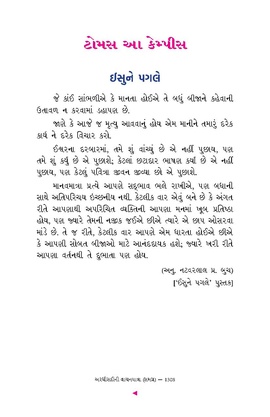 ટોમસ આ કેમ્પીસ
ઈસુને પગલે
જે કાંઈ સાંભળીએ કે માનતા હોઈએ તે બધું બીજાને કહેવાની
ઉતાવળ ન કરવામાં ડહાપણ છે.
જાણે કે આજે જ મૃત્યુ આવવાનું હોય એમ માનીને તમારું દરેક
કાર્ય ને દરેક વિચાર કરો.
ઈશ્વરના દરબારમાં, તમે શું વાંચ્યું છે એ નહીં પુછાય, પણ
તમે શું કર્યું છે એ પુછાશે; કેટલાં છટાદાર ભાષણ કર્યાં છે એ નહીં
પુછાય, પણ કેટલું પવિત્ર જીવન જીવ્યા છો એ પુછાશે.
માનવમાત્રા પ્રત્યે આપણે સદ્ભાવ ભલે રાખીએ, પણ બધાની
સાથે અતિપરિચય ઇચ્છનીય નથી. કેટલીક વાર એવું બને છે કે અંગત
રીતે આપણાથી અપરિચિત વ્યક્તિની આપણા મનમાં ખૂબ પ્રતિષ્ઠા
હોય, પણ જ્યારે તેમની નજીક જઈએ છીએ ત્યારે એ છાપ ઓસરવા
માંડે છે. તે જ રીતે, કેટલીક વાર આપણે એમ ધારતા હોઈએ છીએ
કે આપણી સોબત બીજાઓ માટે આનંદદાયક હશે; જ્યારે ખરી રીતે
આપણા વર્તનથી તે દુભાતા પણ હોય.
(અનુ. નટવરલાલ પ્ર. બુચ)
[‘ઈસુને પગલે’ પુસ્તક]
અરધી સદીની વાચનયાત્રા